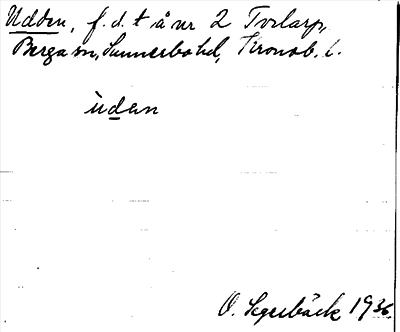 Udden, f.d. t å nr 2 Torlarp,
Berga sn, Sunnerbo hd, Kronob. l.
ùden
O. Segrebäck 1936.